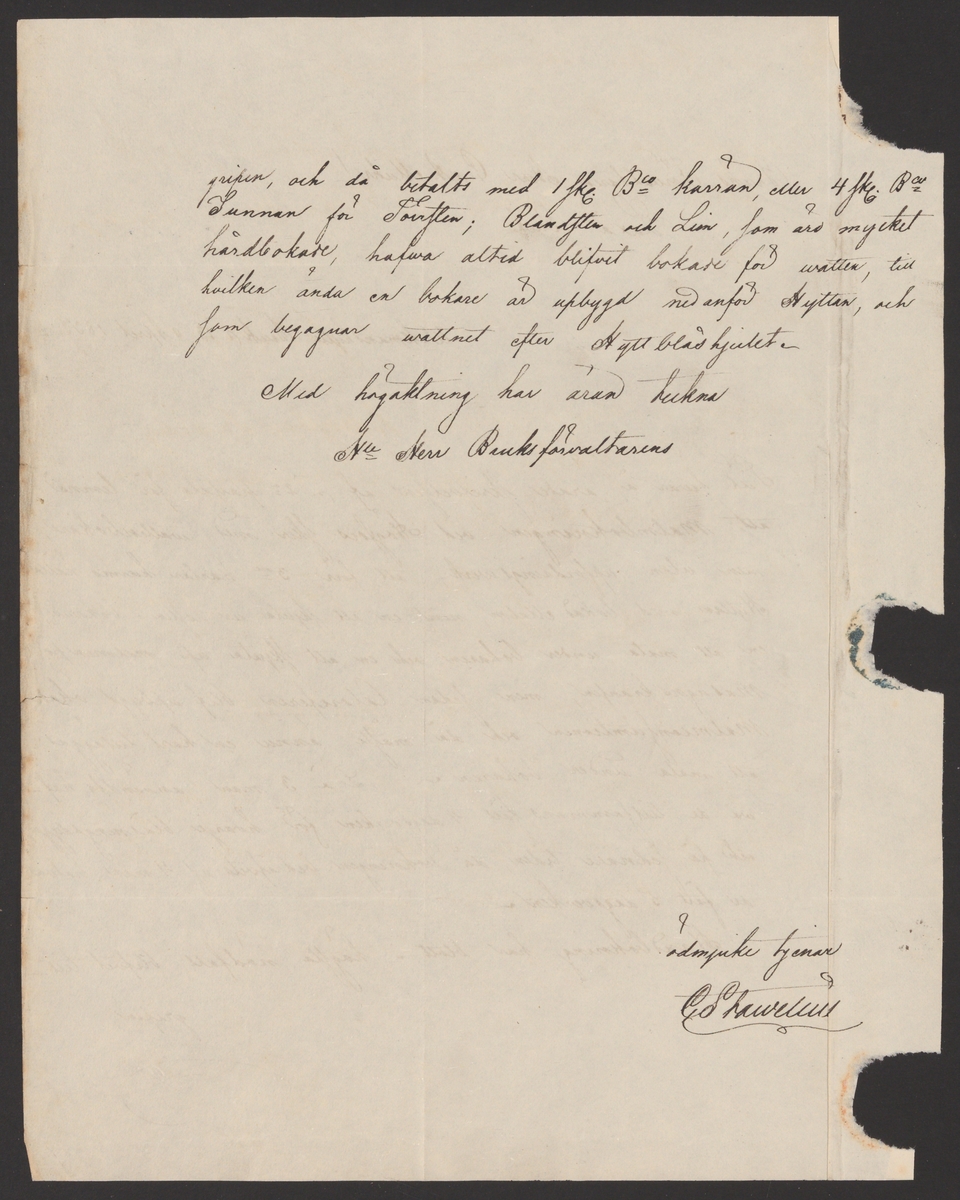 gripen, och då betalts med 1 sk. Bco kärran, eller 4 sk. Bco
Tunnan för Torrsten; Blandsten och Lim, som äro mycket
hårdbokade, hafwa altid blifvit bokade för watten, till
hvilken ända en bokare är upbygd nedanför Hyttan, och
som begagnar wattnet efter Hyttblåshjulet.
Med högaktning har äran tekna
Hr Herr Bruksförvaltarens
ödmjuke tjenar